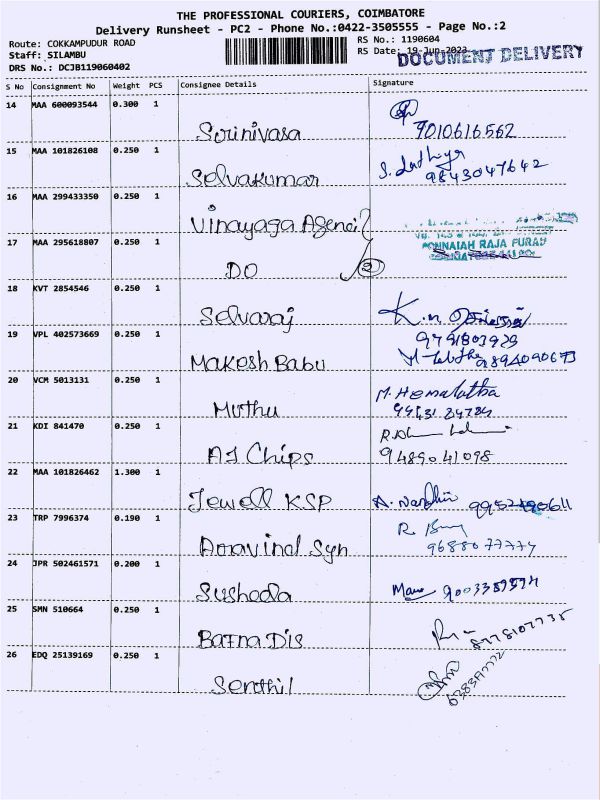 THE PROFESSIONAL COURIERS, COIMBATORE
Delivery Runsheet - PC2 - Phone No.:0422-3505555 - Page No.:2
Route: COKKAMPUDUR ROAD
RS No.: 1190604
Staff: SILAMBU
RS Date: 19-Jun-2023
DOCUMENT DELIVERY
DRS No.: DCJB119060402
S No Consignment No Weight PCS Consignee Details Signature
14 MAA 600093544 0.300 1
Sorinivasa 7010616562
15 MAA 101826108 0.250 1
Selvakumar 9843047642
16 MAA 299433350 0.250 1
Vinayaga
17 MAA 295618807 0.250 1
PONNAIAH RAJA PURAM
DO 2
18 KVT 2854546 0.250 1
Selvaraj K.M
19 VPL 402573669 0.250 1
9791803929
Makesh Babu
20 VCM 5013131 0.250 1
Muthu M. Hemalatha
21 KDI 841470 0.250 1
AJ Chips 9489041098
22 MAA 101826462 1.300 1
Jewell KSP
23 TRP 7996374 0.190 1
Aravind Syn 9688077774
24 JPR 502461571 0.200 1
Susheela
25 SMN 510664 0.250 1
Bafna Dis 8778107735
26 EDQ 25139169 0.250 1
Senthil